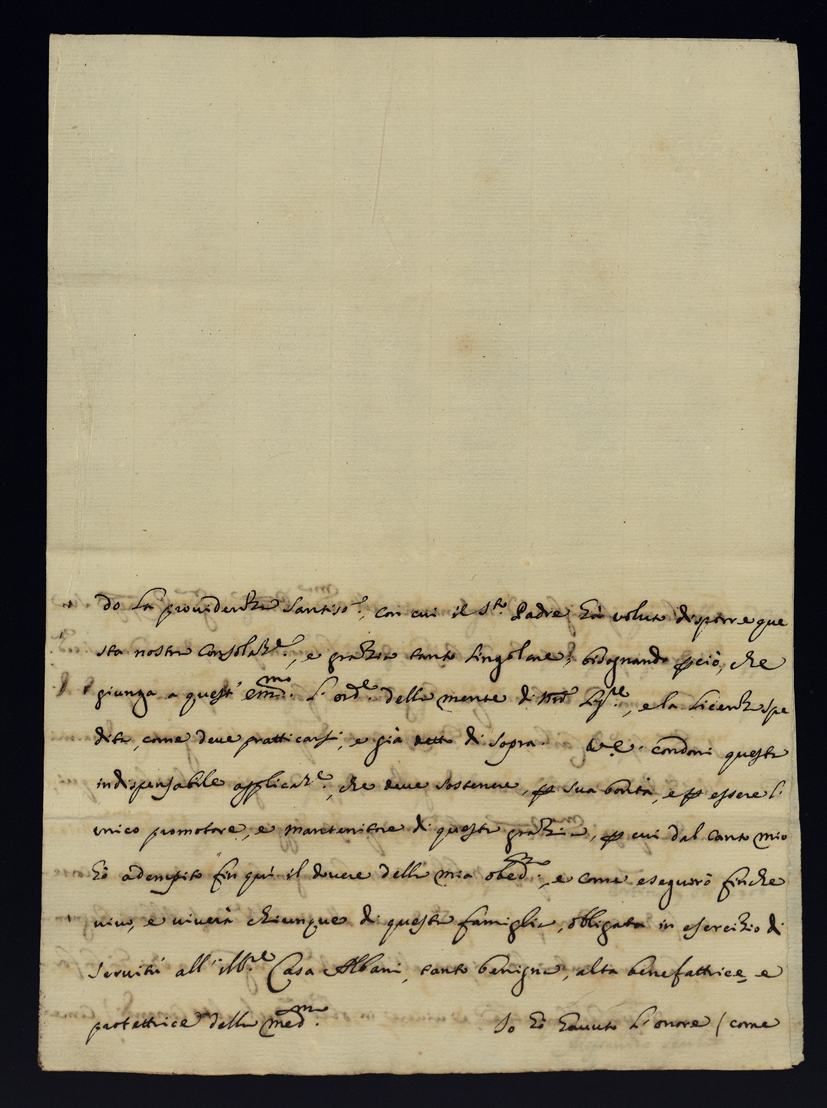 do la providenza santiss.ª, con cui il S.to Padre hà voluto disporre que
sta nostra consolaz.e, e grazia tanto singolare; bisognando p ciò, che
giunga a quest' em.mo l'ord.e della mente di , e la licenza spe
dita, come deve pratticarsi, e già detto di sopra. condoni questa
indispensabile applicaz.e, che deve sostenere, p sua bontà, e p essere l'
unico promotore, e mantenitore di questa grazia, p cui dal canto mio
hò adempito fin quì il dovere della mia obed.za, e come eseguirò finche
vivo, e viverà chiunque di questa famiglia, obbligata in esercizio di
servitù all' ill.re Casa Albani, tanto benigna, alta benefattrice, e
protettrice della med.ma. Io hò havuto l'onore (come